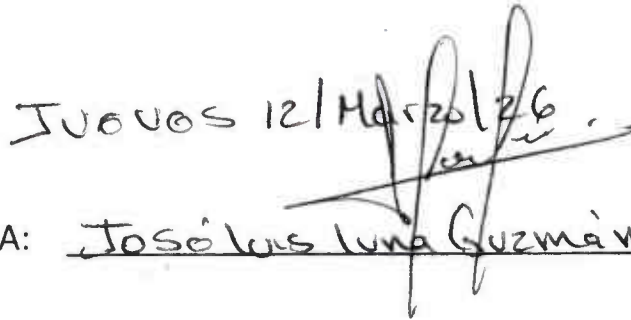 Jueves 12/Marzo/26
A: José luis luna Guzmán